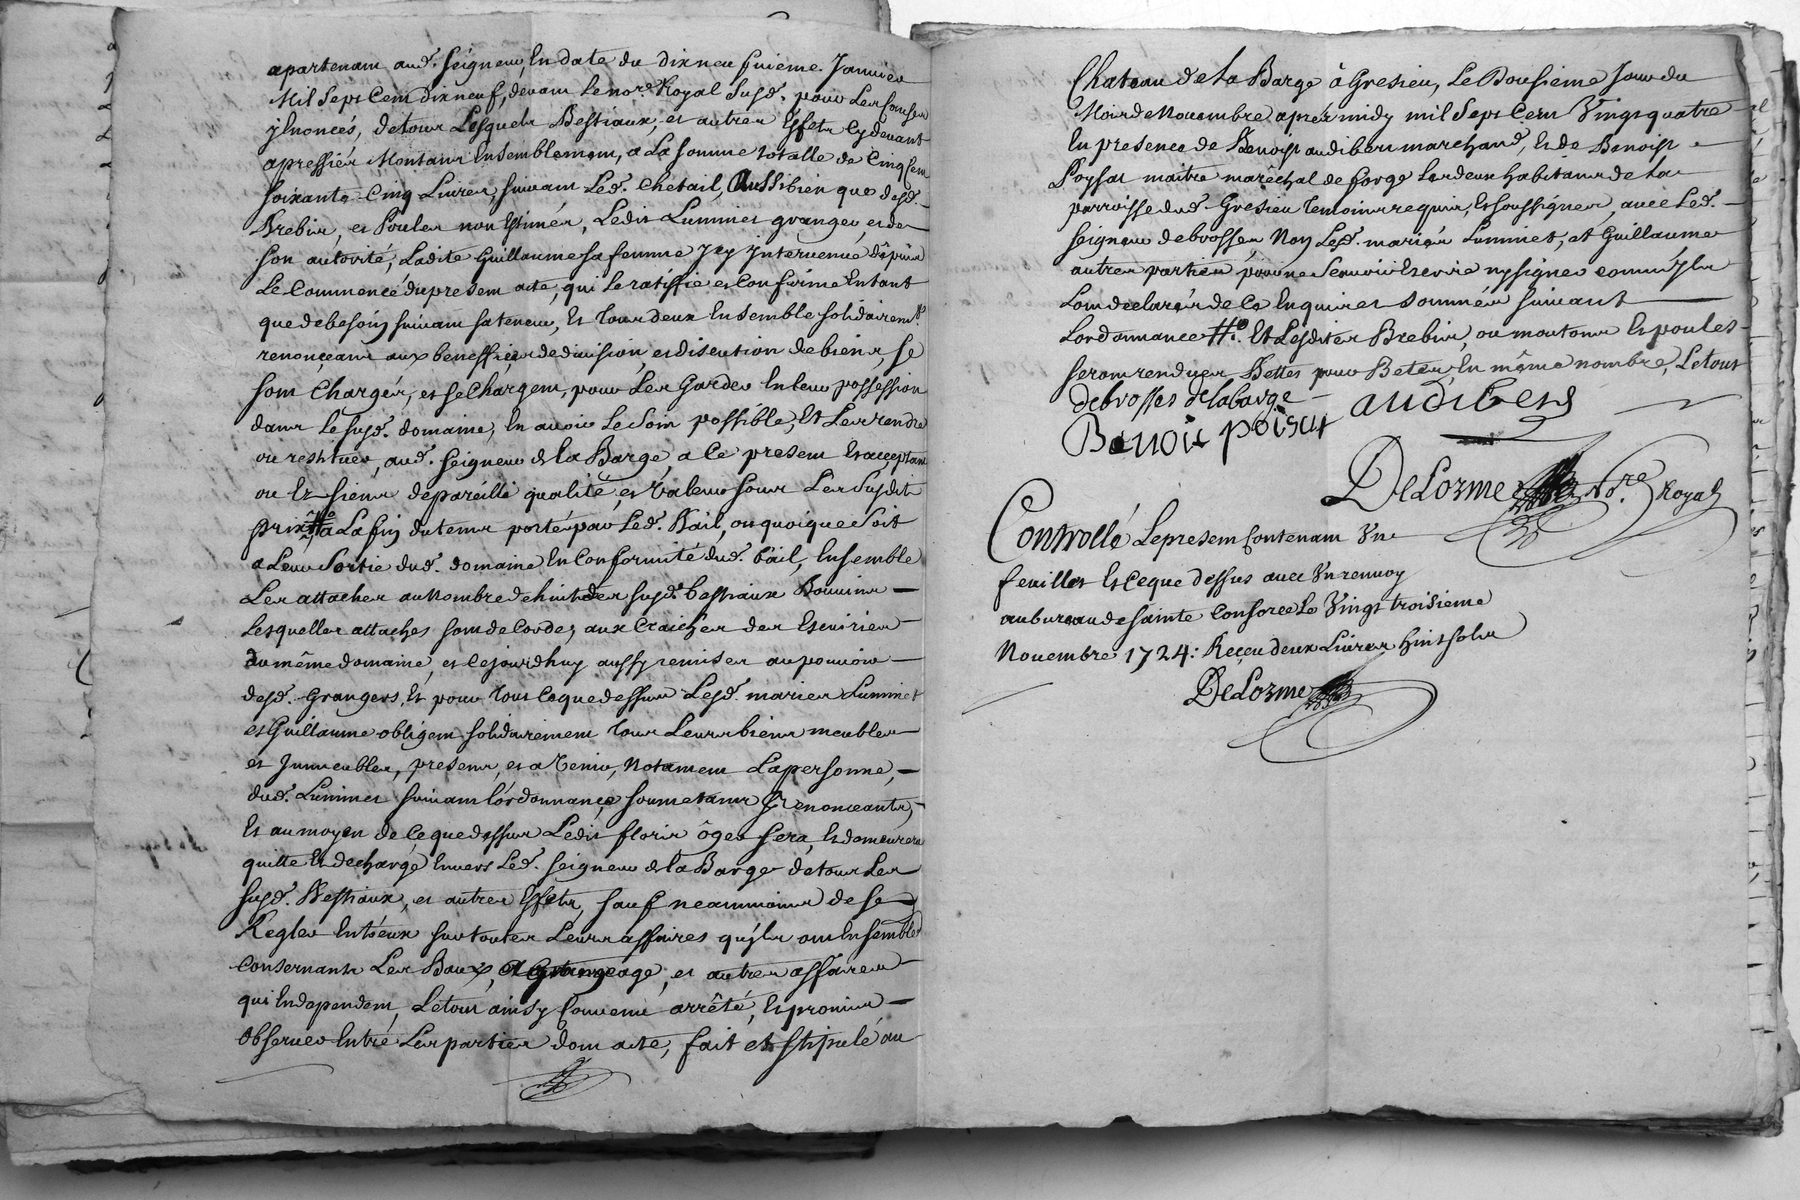 apartenant aud. seigneur, En date du dixneufuieme Janvier
Mil Sept Cent dixneuf, devant le no.re Royal Susd. pour Les Causes
y Enoncés, de tous Lesquels Bestiaux, et autres Effets Cy devant
apressiés Montant Ensemblement, a La somme totalle de Cinq Cent
soixante Cinq Livres, suivant Led. Chetail, Aussi bien que desd.
Brebis, et Poules non Estimés, Ledit Luminet granger, et de
son autorité, Ladite Guillaume sa femme Icy Intervenue dépuis
Le Commencé du present acte, qui Le ratiffie et Confirme En tant
que de besoin suivant sa teneur, Et Tous deux Ensemble solidairem.t
renonçeant aux beneffiçes de division, et discution de biens, se
sont Chargés, et se Chargent, pour Les Garder En leur possession
dans Le susd. domaine, En avoir Le Soin possible, Et Les rendre
ou restituer, aud. seigneur de la Barge, a Ce present Et acceptant
ou Et siens de pareille qualité, et Valeur sous Les Susdits
prix # a La fin du tems porté par Led. Bail, ou quoique Soit
a Leur Sortie dud. domaine En Conformité dud. bail, Ensemble
Les attaches au Nombre de huit des susd. bestiaux Bouvins —
Lesquelles attaches sont de Cordes aux Craiches des Escuiries
du même domaine, et Cejourdhuy aussy remises au pouvoir —
desd. Grangers, Et pour Tout Ce que dessus Lesd. mariés Luminet
et Guillaume obligent solidairement Tous Leurs biens meubles —
et Immeubles, presens, et a Venir, Notament La personne, —
dud. Luminet suivant l'ordonnance, soumetans Renonceants,
Et au moyen de Ce que dessus Ledit floris ôger sera, Et demeurera
quitte Et dechargé Envers Led. seigneur de la Barge de tous Les
susd. Bestiaux, et autres Effets, sauf neammoins de se
Regler Entreux sur toutes Leurs affaires quyls ont Ensembles
Consernants Les Baux, et Grangeage, et autres affaires
qui En dependent, Le tout ainsy Convenu arrêté, Et promis —
Observer Entre Les parties dont acte, fait et stipulé au
Chateau de la Barge à Gresieu, Le Dousieme Jour du
Mois de Novembre aprés midy mil Sept Cent Vingt quatre
En presence de Benoist audibert marchand, Et de Benoist
Poysat maitre maréchal de forge Les deux habitans de La
parroisse dud. Gresieu Temoins requis, Et soussignés, avec Led.
seigneur debrosses, Non Lesd. mariés Luminet, et Guillaume
autres parties pour ne Scavoir Escrire ny signer comme Ils
L'ont declarés de Ce Enquis et sommés suivant
Lordonnance #. Et Lesdites Brebis, ou moutons Et poules
seront rendues Bettes pour Betes, En même nombre, Le tout
debrosses delabarge
audibert
Benoit poisat
DeLorme No.re Royal
Controllé Le present Contenant Un
feuillet Et Ce que dessus avec Un renvoy
au bureau de sainte Consorce Le Vingt troisieme
Novembre 1724: Reçeu deux Livres huit sols
DeLorme